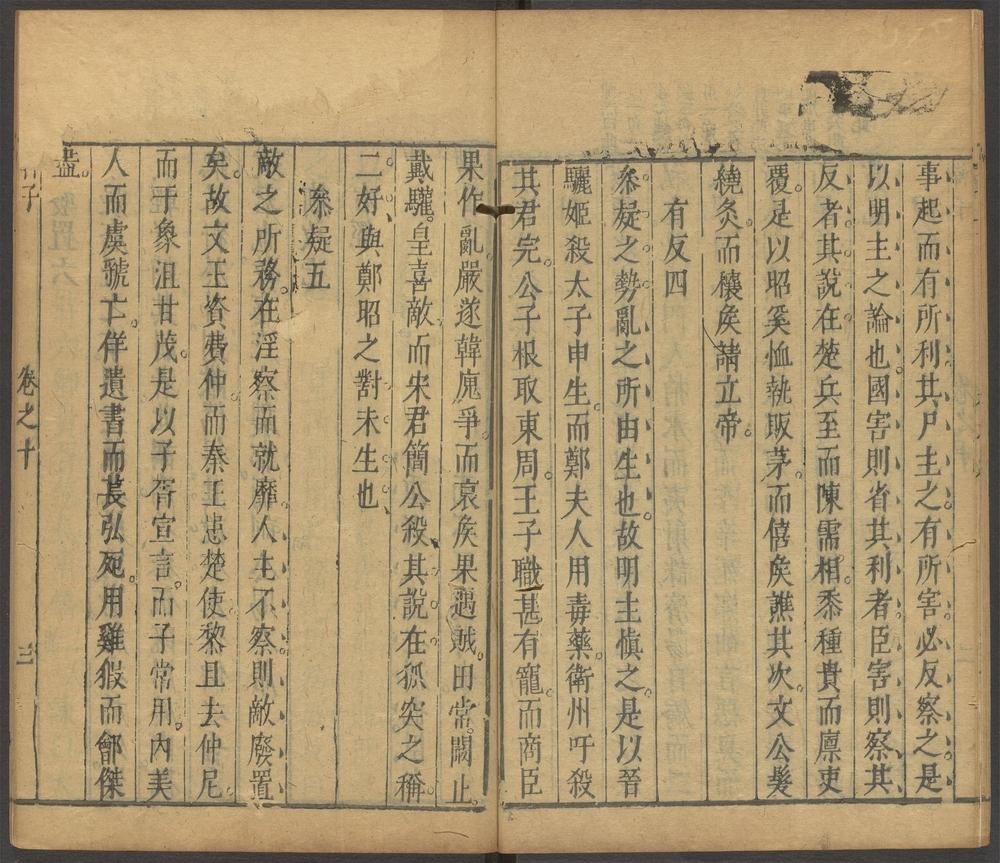 事起而有所利其尸主之有所害必反察之是
以明主之論也國害則省其利者臣害則察其
反者其說在楚兵至而陳需相黍種貴而廩吏
覆是以昭奚恤執販茅而僖侯譙其次文公髮
繞炙而穰侯請立帝
有反四
叅疑之勢亂之所由生也故明主慎之是以晉
驪姬殺太子申生而鄭夫人用毒藥衛州吁殺
其君完公子根取東周王子職甚有寵而商臣
果作亂嚴遂韓廆爭而哀侯果遇賊田常闞止
戴驩皇喜敵而宋君簡公殺其說在狐突之稱
二好與鄭昭之對未生也
叅疑五
敵之所務在淫察而就靡人主不察則敵廢置
矣故文王資費仲而秦王患楚使黎且去仲尼
而干象沮甘茂是以子胥宣言而子常用內美
人而虞虢亡佯遺書而萇弘死用雞猳而鄶傑
盡
子
卷之十
三